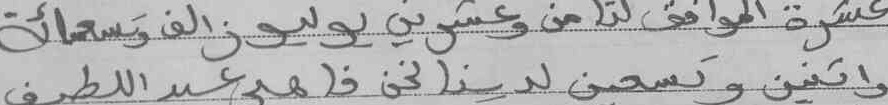 عشرة الموافق لثامن وعشرين يوليوز الف وتسعمائة
واثنين وتسعين لدينا نحن فاهم عبد اللطيف